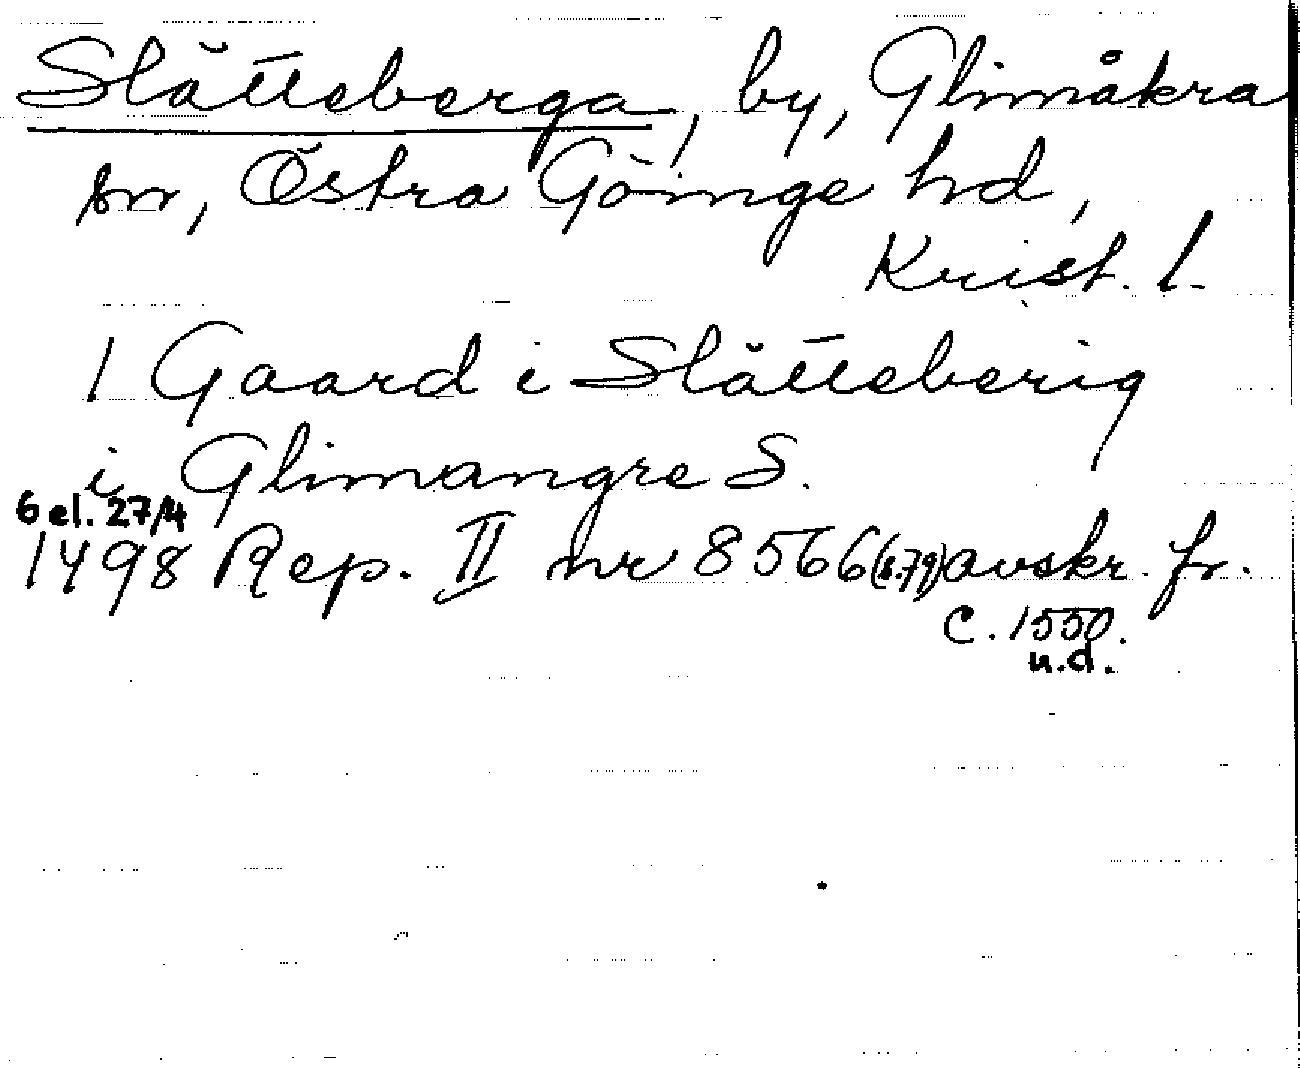 Slätteberga, by, Glimåkra
sn, Östra Göinge hd,
Krist. l.
1 Gaard i Slätteberig
i Glimangre S.
6 el. 27/4
1498 Rep. II nr 8566 (s.79) avskr. fr.
c. 1550.
u.d.